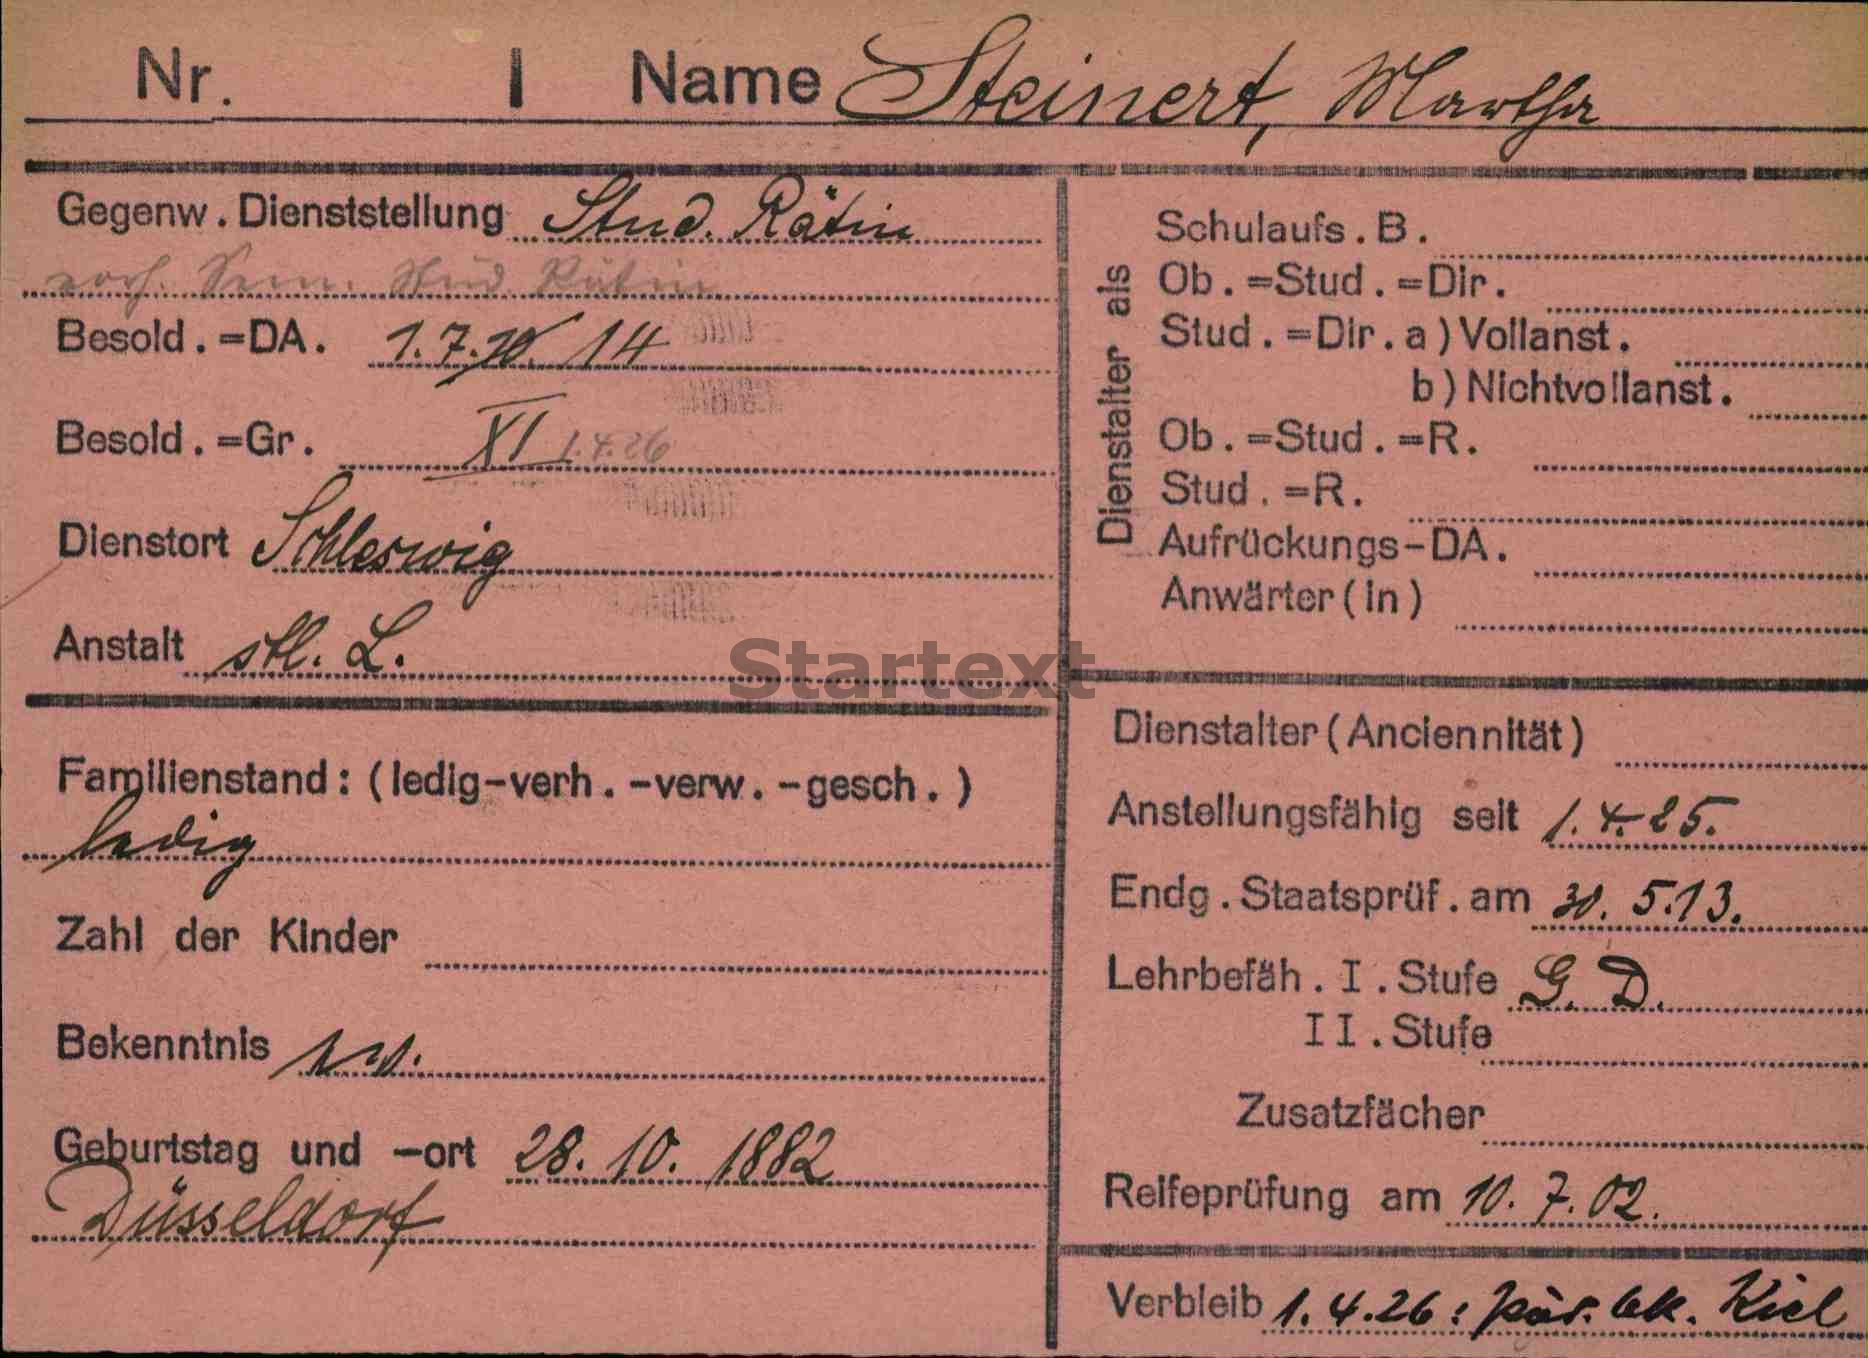 Nr. I Name Steinert, Martha
Gegenw. Dienststellung Stud. Rätin
vorh. Sem. Stud. Rätin
Besold.=DA. 1.7.20. 14
Besold.=Gr. XI 1.4.26
Dienstort Schleswig
Anstalt stl. L.
Familienstand: (ledig-verh.-verw.-gesch.)
ledig
Zahl der Kinder
Bekenntnis ev.
Geburtstag und -ort 28. 10. 1882
Düsseldorf
Dienstalter als
Schulaufs. B.
Ob.=Stud.=Dir.
Stud.=Dir. a) Vollanst.
b) Nichtvollanst.
Ob.=Stud.=R.
Stud.=R.
Aufrückungs-DA.
Anwärter(in)
Startext
Dienstalter (Anciennität)
Anstellungsfähig seit 1.4.25.
Endg. Staatsprüf. am 30. 5.13.
Lehrbefäh. I. Stufe G. D.
II. Stufe
Zusatzfächer
Reifeprüfung am 10. 7. 02.
Verbleib 1.4.26: Kiel